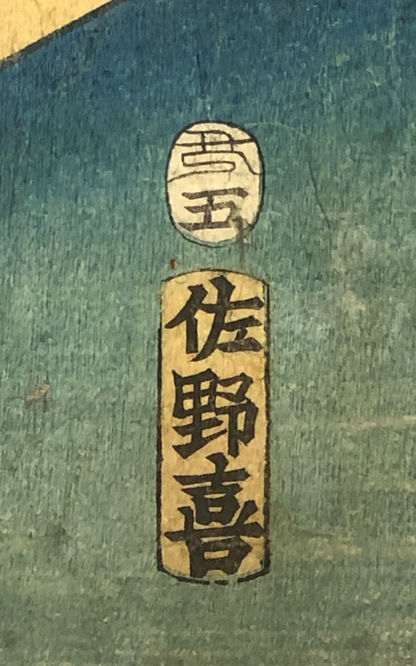 五
佐野喜